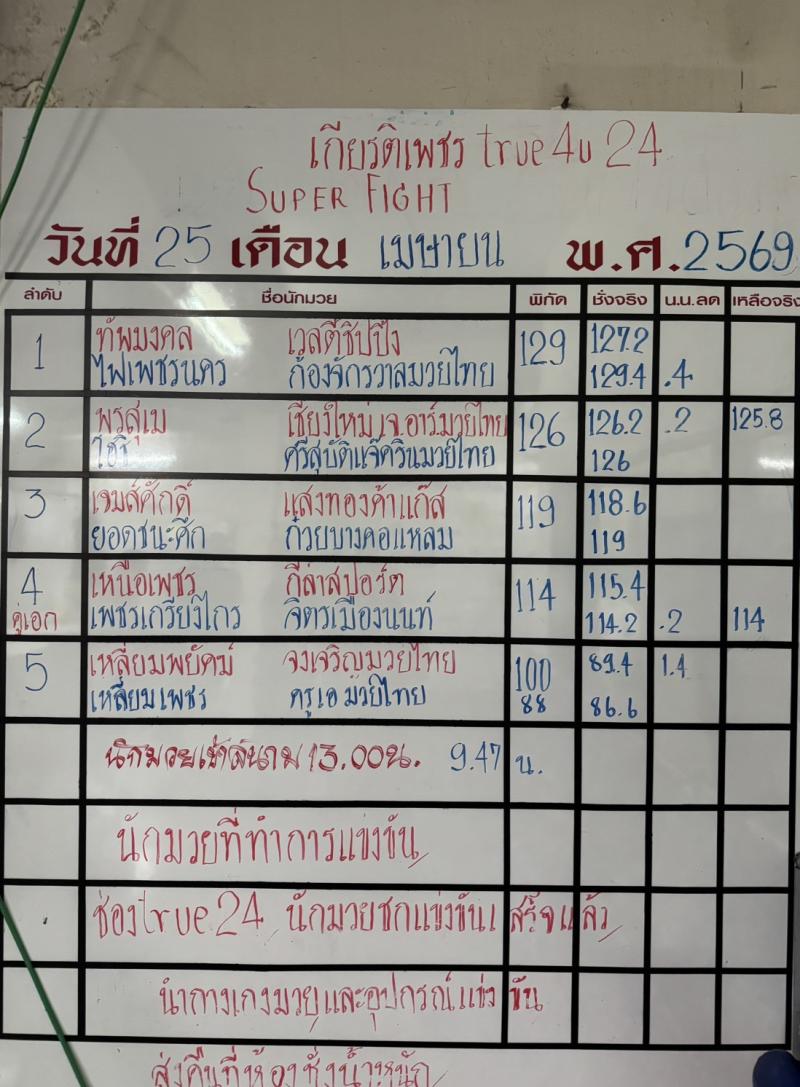 เกียรติเพชร true4u 24
SUPER FIGHT
วันที่ 25 เดือน เมษายน พ.ศ.2569
ลำดับ ชื่อนักมวย พิกัด ชั่งจริง น.น.ลด เหลือจริง
1 ทัพมงคล เวสตี้ชิปปิ้ง 129 127.2
ไฟเพชรนคร ก้องจักรวาลมวยไทย 129.4 .4
2 พรสุเม เชียงใหม่ เจ.อาร์มวยไทย 126 126.2 .2 125.8
โชริ ศรีสุบัติแจ๊ครินมวยไทย 126
3 เจมส์ศักดิ์ แสงทองค้าแก๊ส 119 118.6
ยอดชนะศึก ก๋วยบางคอแหลม 119
4 เหนือเพชร กีล่าสปอร์ต 114 115.4
คู่เอก เพชรเกรียงไกร จิตรเมืองนนท์ 114.2 .2 114
5 เหลี่ยมพยัคฆ์ จงเจริญมวยไทย 100 89.4 1.4
เหลี่ยมเพชร ครูเอ มวยไทย 88 86.6
นักมวยเข้าสนาม 13.00น. 9.47 น.
นักมวยที่ทำการแข่งขัน
ช่องtrue24 นักมวยชกแข่งขันเสร็จแล้ว
นำกางเกงมวยและอุปกรณ์แข่งขัน
ส่งคืนที่ห้องชั่งน้ำหนัก